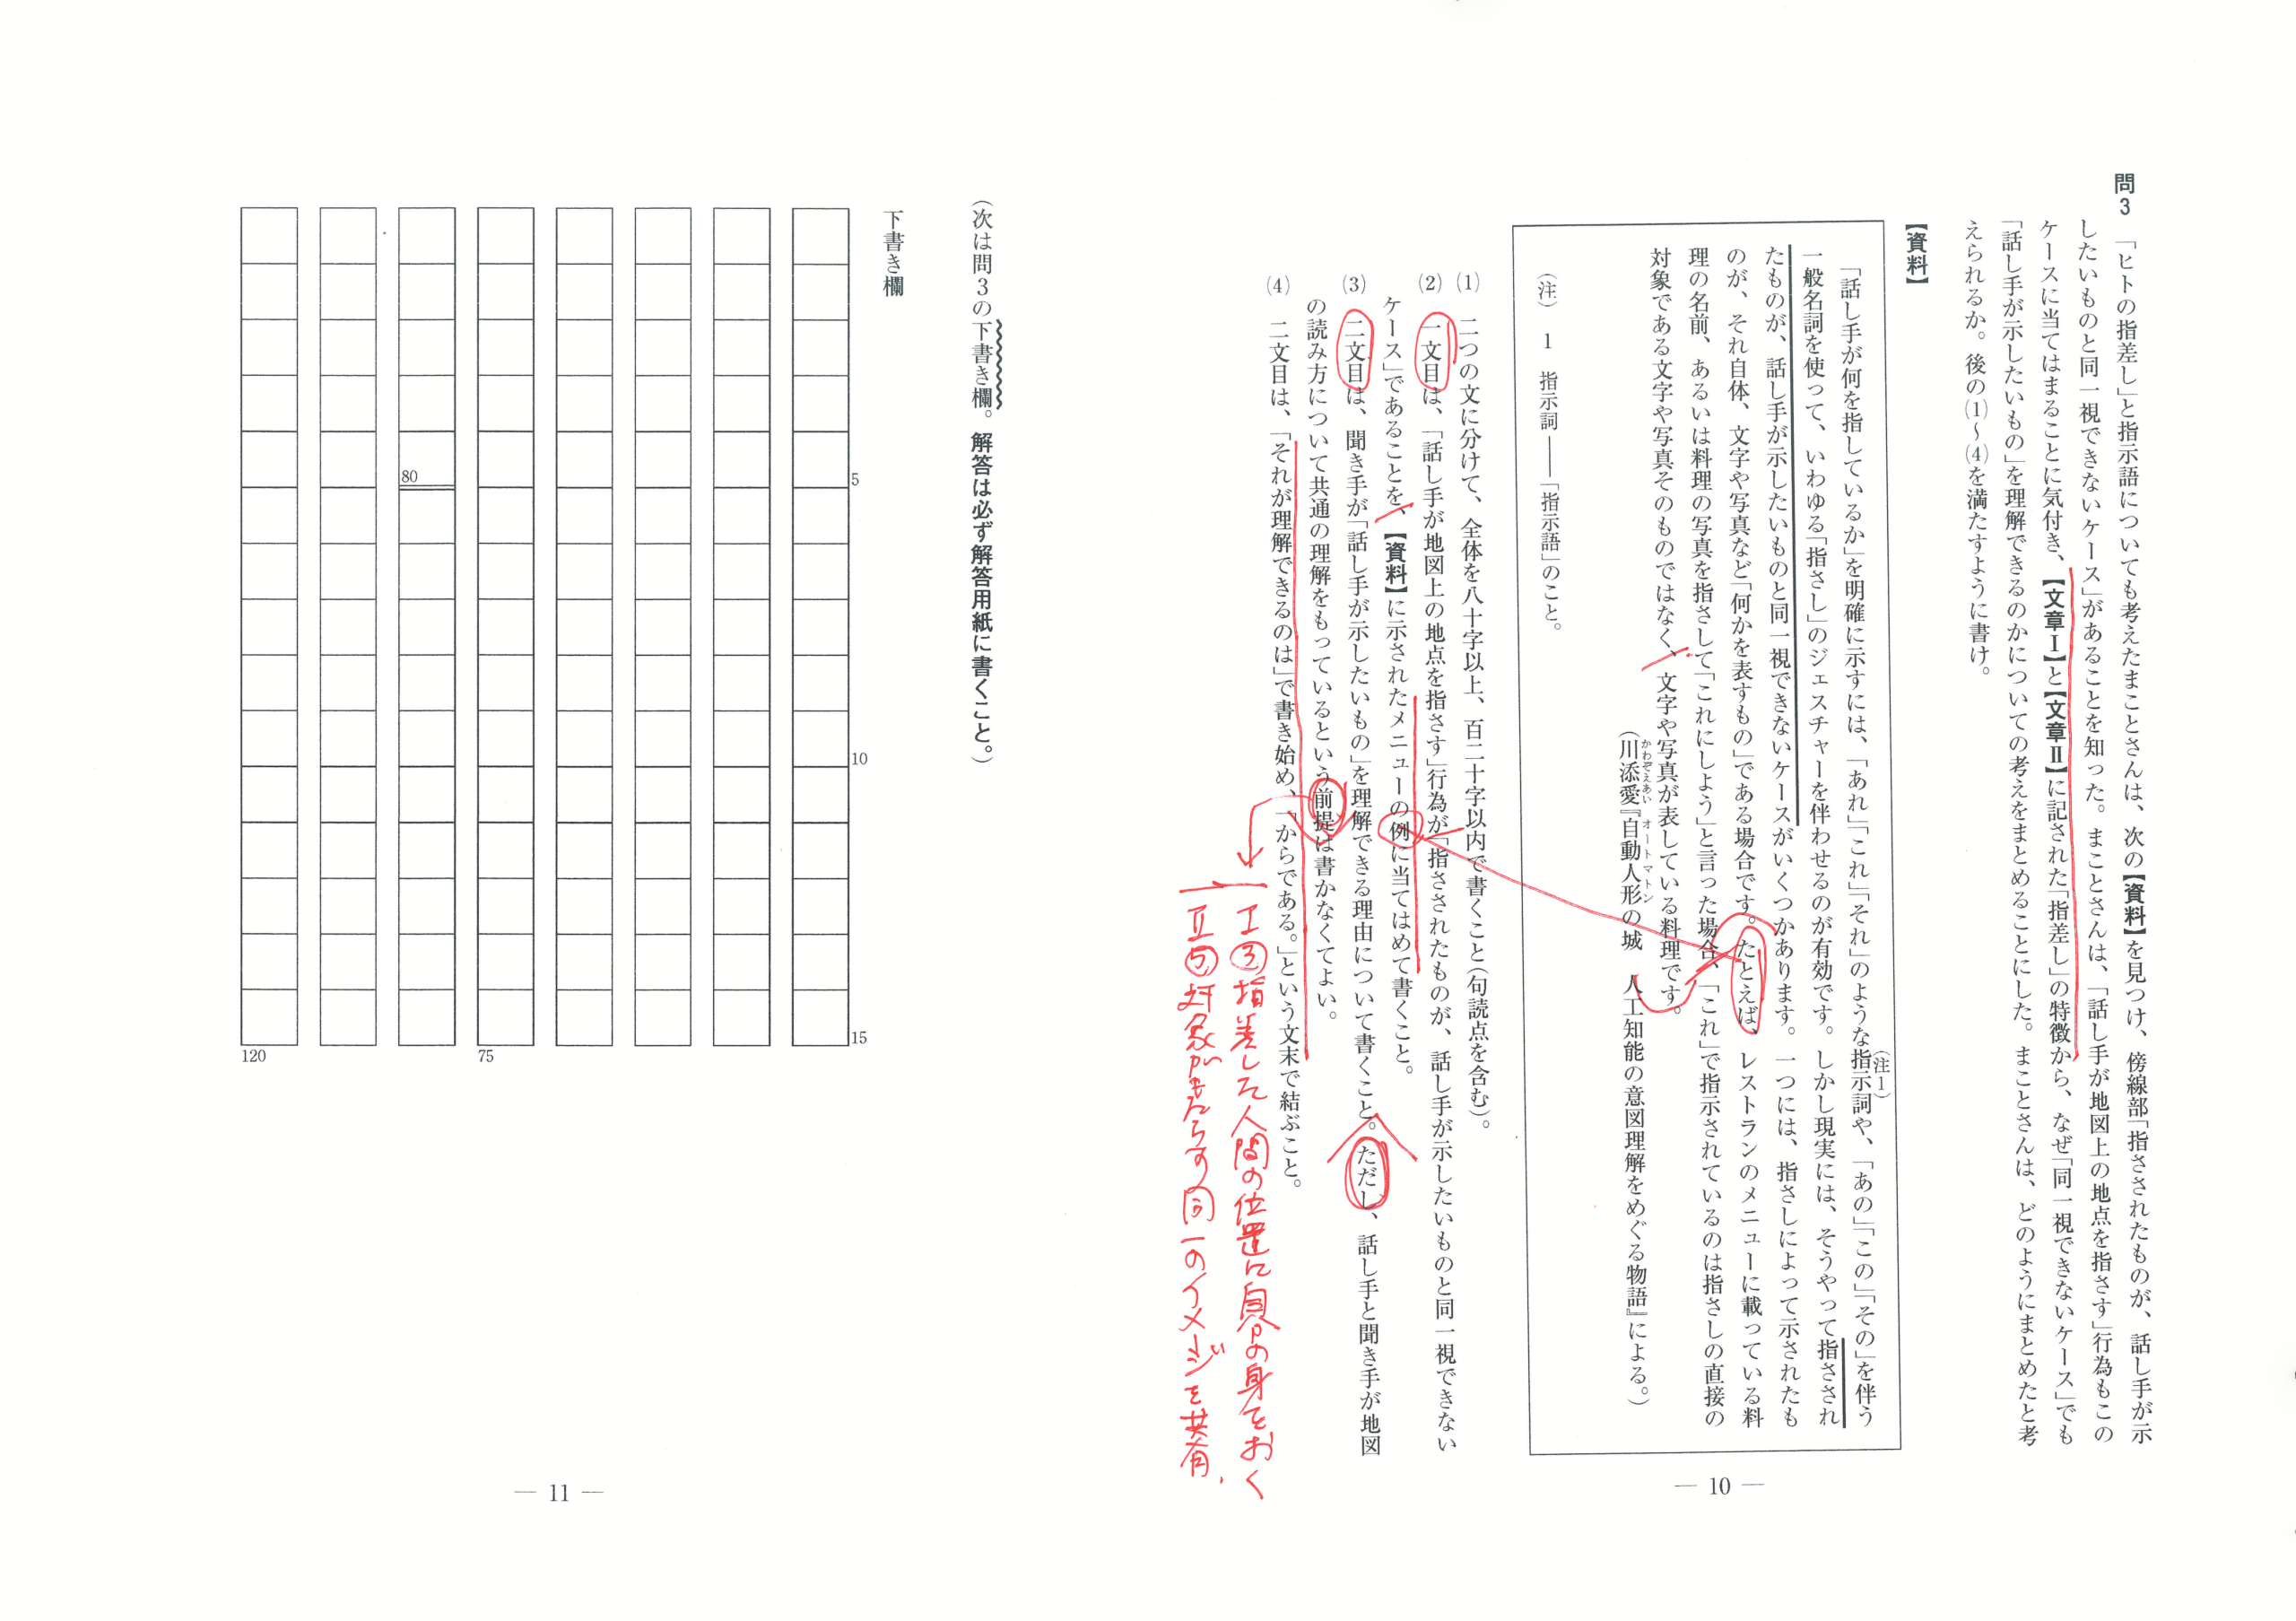 問3 「ヒトの指差し」と指示語についても考えたまことさんは、次の【資料】を見つけ、傍線部「指さされたものが、話し手が示
したいものと同一視できないケース」があることを知った。まことさんは、「話し手が地図上の地点を指さす」行為もこの
ケースに当てはまることに気付き、【文章Ⅰ】と【文章Ⅱ】に記された「指差し」の特徴から、なぜ「同一視できないケース」でも
「話し手が示したいもの」を理解できるのかについての考えをまとめることにした。まことさんは、どのようにまとめたと考
えられるか。後の(1)～(4)を満たすように書け。
【資料】
「話し手が何を指しているか」を明確に示すには、「あれ」「これ」「それ」のような指示詞(注1)や、「あの」「この」「その」を伴う
一般名詞を使って、いわゆる「指さし」のジェスチャーを伴わせるのが有効です。しかし現実には、そうやって指さされ
たものが、話し手が示したいものと同一視できないケースがいくつかあります。一つには、指さしによって示されたも
のが、それ自体、文字や写真など「何かを表すもの」である場合です。たとえば、レストランのメニューに載っている料
理の名前、あるいは料理の写真を指さして「これにしよう」と言った場合、「これ」で指示されているのは指さしの直接の
対象である文字や写真そのものではなく、文字や写真が表している料理です。
(川添愛『自動人形の城 人工知能の意図理解をめぐる物語』による。)
かわぞえあい オートマトン
(注) 1 指示詞――「指示語」のこと。
(1) 二つの文に分けて、全体を八十字以上、百二十字以内で書くこと(句読点を含む)。
(2) 一文目は、「話し手が地図上の地点を指さす」行為が「指さされたものが、話し手が示したいものと同一視できない
ケース」であることを、【資料】に示されたメニューの例に当てはめて書くこと。
(3) 二文目は、聞き手が「話し手が示したいもの」を理解できる理由について書くこと。ただし、話し手と聞き手が地図
の読み方について共通の理解をもっているという前提は書かなくてよい。
(4) 二文目は、「それが理解できるのは」で書き始め、「からである。」という文末で結ぶこと。
Ⅰ③指差した人間の位置に自分の身をおく
Ⅱ⑤対象がもたらす同一のイメージを共有、
― 10 ―
(次は問3の下書き欄。解答は必ず解答用紙に書くこと。)
下書き欄
5
10
15
75
80
120
― 11 ―